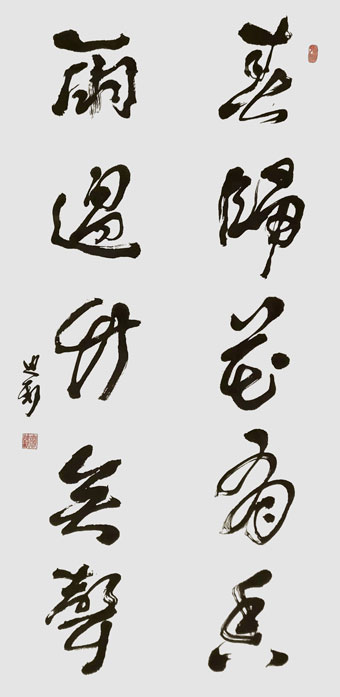 春歸花有香
雨過竹無聲